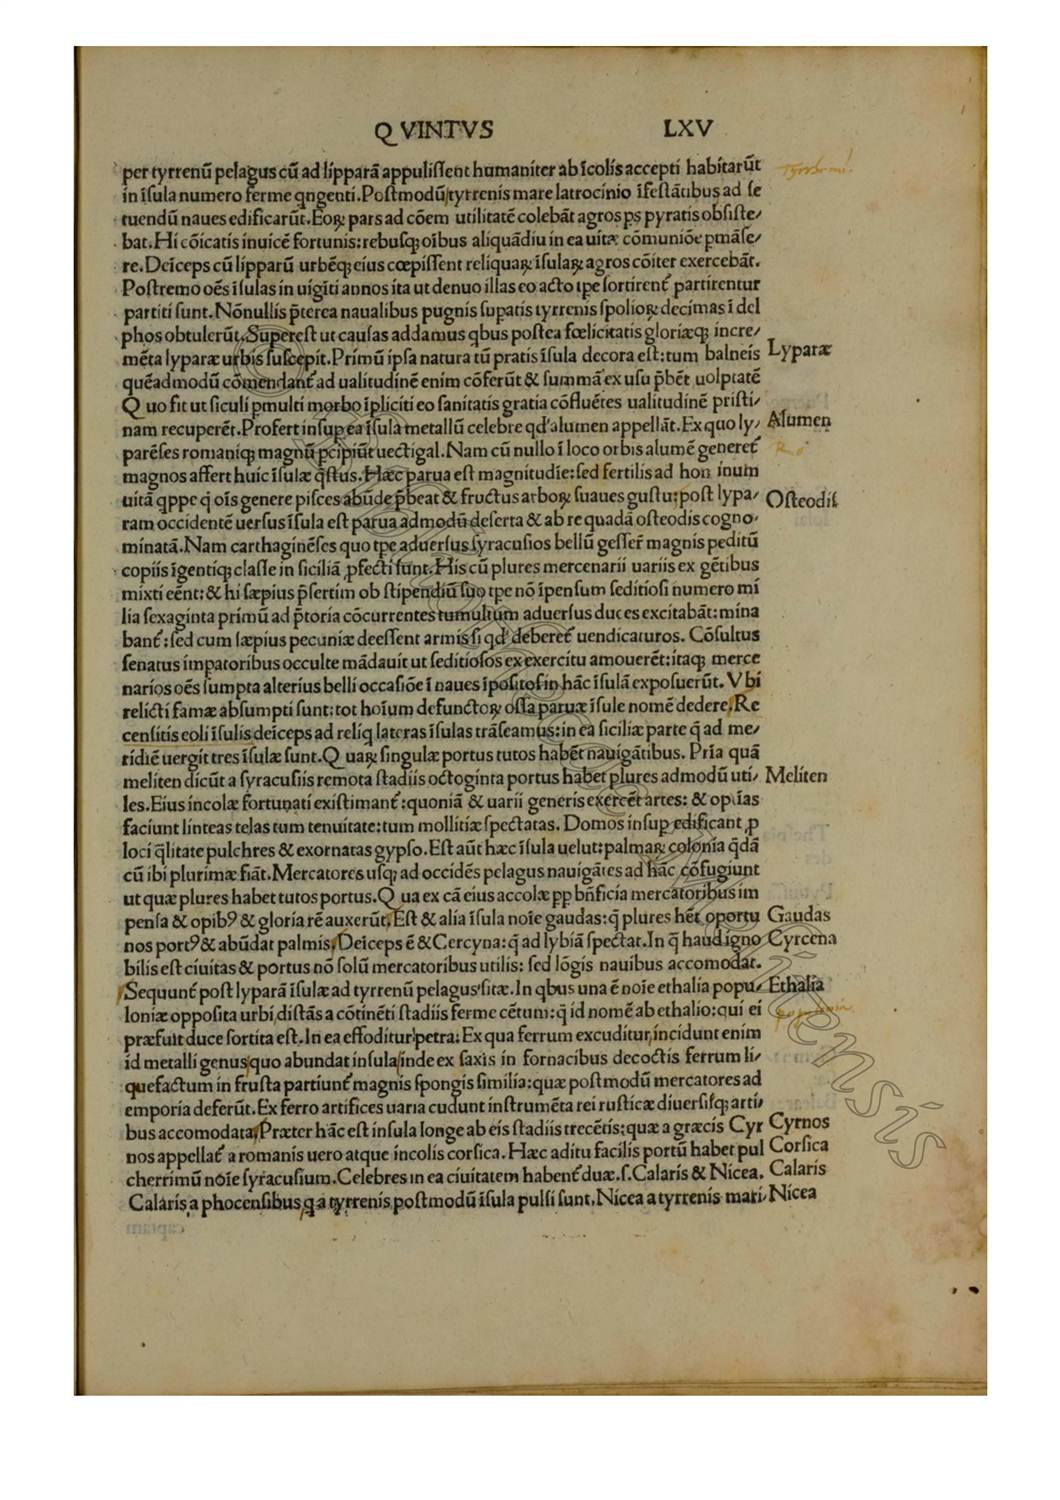 Q VINTVS LXV
per tyrrenū pelagus cū ad lipparā appulissent humaniter ab īcolis accepti habitarūt
in īsula numero ferme qngenti. Postmodū tyrrenis mare latrocinio īfestātibus ad se
tuendū naues edificarūt. Eoꝝ pars ad cōem utilitatē colebāt agros ps pyratis obsiste/
bat. Hi cōicatis inuicē fortunis: rebusqꝫ oībus aliquādiu in ea uitæ cōmuniōe pmāse/
re. Deīceps cū lipparū urbēqꝫ eius cœpissent reliquaꝝ īsulaꝝ agros cōiter exercebāt.
Postremo oēs īsulas in uigīti annos ita ut denuo illas eo acto tpe sortirent̄ partirentur
partiti sunt. Nōnullis p̄terea naualibus pugnis supatis tyrrenis spolioꝝ decimas ī del
phos obtulerūt. Superest ut causas addamus qbus postea fœlicitatis gloriæqꝫ incre/
mēta lyparæ urbis suscepit. Primū ipsa natura tū pratis īsula decora est: tum balneis
quēadmodū cōmendant̄ ad ualitudinē enim cōferūt & summā ex usu p̄bēt uolptatē
Q uo fit ut siculi pmulti morbo īpliciti eo sanitatis gratia cōfluētes ualitudinē pristi/
nam recuperēt. Profert insup ea īsula metallū celebre qd' alumen appellāt. Ex quo ly/
parēses romaniqꝫ magnū pcipiūt uectigal. Nam cū nullo ī loco orbis alumē generet̄
magnos affert huic īsulæ q̄stus. Hæc parua est magnitudīe: sed fertilis ad hominum
uitā qppe q̄ oīs genere pisces abūde p̄beat & fructus arboꝝ suaues gustu: post lypa/
ram occidentē uersus īsula est parua admodū deserta & ab re quadā osteodis cogno/
minatā. Nam carthaginēses quo tpe aduersus syracusios bellū gesser̄ magnis peditū
copiis īgentiqꝫ classe in siciliā ꝓfecti sunt. His cū plures mercenarii uariis ex gētibus
mixti eēnt: & hi sæpius p̄sertim ob stipendiū suo tpe nō īpensum seditiosi numero mi
lia sexaginta primū ad p̄toria cōcurrentes tumultum aduersus duces excitabāt: mina
bant̄: sed cum sæpius pecuniæ deessent armis si qd' deberet̄ uendicaturos. Cōsultus
senatus impatoribus occulte mādauit ut seditiosos ex exercitu amouerēt: itaqꝫ merce
narios oēs sumpta alterius belli occasiōe ī naues īpositos in hāc īsulā exposuerūt. Vbi
relicti famæ absumpti sunt: tot hoīum defunctoꝝ ossa paruæ īsule nomē dedere. Re
censitis eoli īsulis deīceps ad reliq lateras īsulas trāseamus: in ea siciliæ parte q̄ ad me/
ridiē uergit tres īsulæ sunt. Q uaꝝ singulæ portus tutos habēt nauigātibus. Pria quā
meliten dicūt a syracusiis remota stadiis octoginta portus habet plures admodū uti/
les. Eius incolæ fortunati existimant̄: quoniā & uarii generis exercēt artes: & opias
faciunt linteas telas tum tenuitate: tum mollitiæ spectatas. Domos insup edificant ꝓ
loci q̄litate pulchres & exornatas gypso. Est aūt hæc īsula uelut: palmaꝝ colonia q̄dā
cū ibi plurimæ fiāt. Mercatores usqꝫ ad occidēs pelagus nauigātes ad hāc cōfugiunt
ut quæ plures habet tutos portus. Q ua ex cā eius accolæ pp bn̄ficia mercatoribus im
pensa & opibꝰ & gloria rē auxerūt. Est & alia īsula noīe gaudas: q̄ plures hēt oportu
nos portꝰ & abūdat palmis. Deīceps ē & Cercyna: q̄ ad lybiā spectat. In q̄ haud igno
bilis est ciuitas & portus nō solū mercatoribus utilis: sed lōgis nauibus accomodat.
Sequunt̄ post lyparā īsulæ ad tyrrenū pelagus sitæ. In qbus una ē noīe ethalia popu/
loniæ opposita urbi distās a cōtinēti stadiis ferme cētum: q̄ id nomē ab ethalio: qui ei
præfuit duce sortita est. In ea effoditur petra: Ex qua ferrum excuditur, incidunt enim
id metalli genus quo abundat insula inde ex saxis in fornacibus decoctis ferrum li/
quefactum in frusta partiunt̄ magnis spongis similia: quæ postmodū mercatores ad
emporia deferūt. Ex ferro artifices uaria cudunt instrumēta rei rusticæ diuersisqꝫ arti/
bus accomodata. Præter hāc est insula longe ab eis stadiis trecētis: quæ a græcis Cyr
nos appellat̄ a romanis uero atque incolis corsica. Hæc aditu facilis portū habet pul
cherrimū noīe syracusium. Celebres in ea ciuitatem habent̄ duæ. s. Calaris & Nicea.
Calaris a phocensibus q a tyrrenis postmodū īsula pulsi sunt. Nicea a tyrrenis mari/
Lyparæ
Alumen
Osteodis
Meliten
Gaudas
Cyrcena
Ethalia
Cyrnos
Corsica
Calaris
Nicea